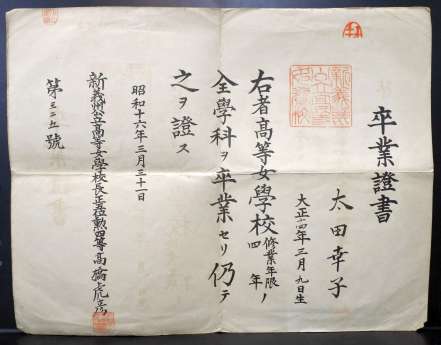 卒業證書
太田幸子
大正十四年三月九日生
右者高等女學校修業年限四年ノ
全學科ヲ卒業セリ仍テ
之ヲ證ス
昭和十六年三月三十一日
新義州公立高等女學校長正位勲四等高橋虎彦
第三二五號